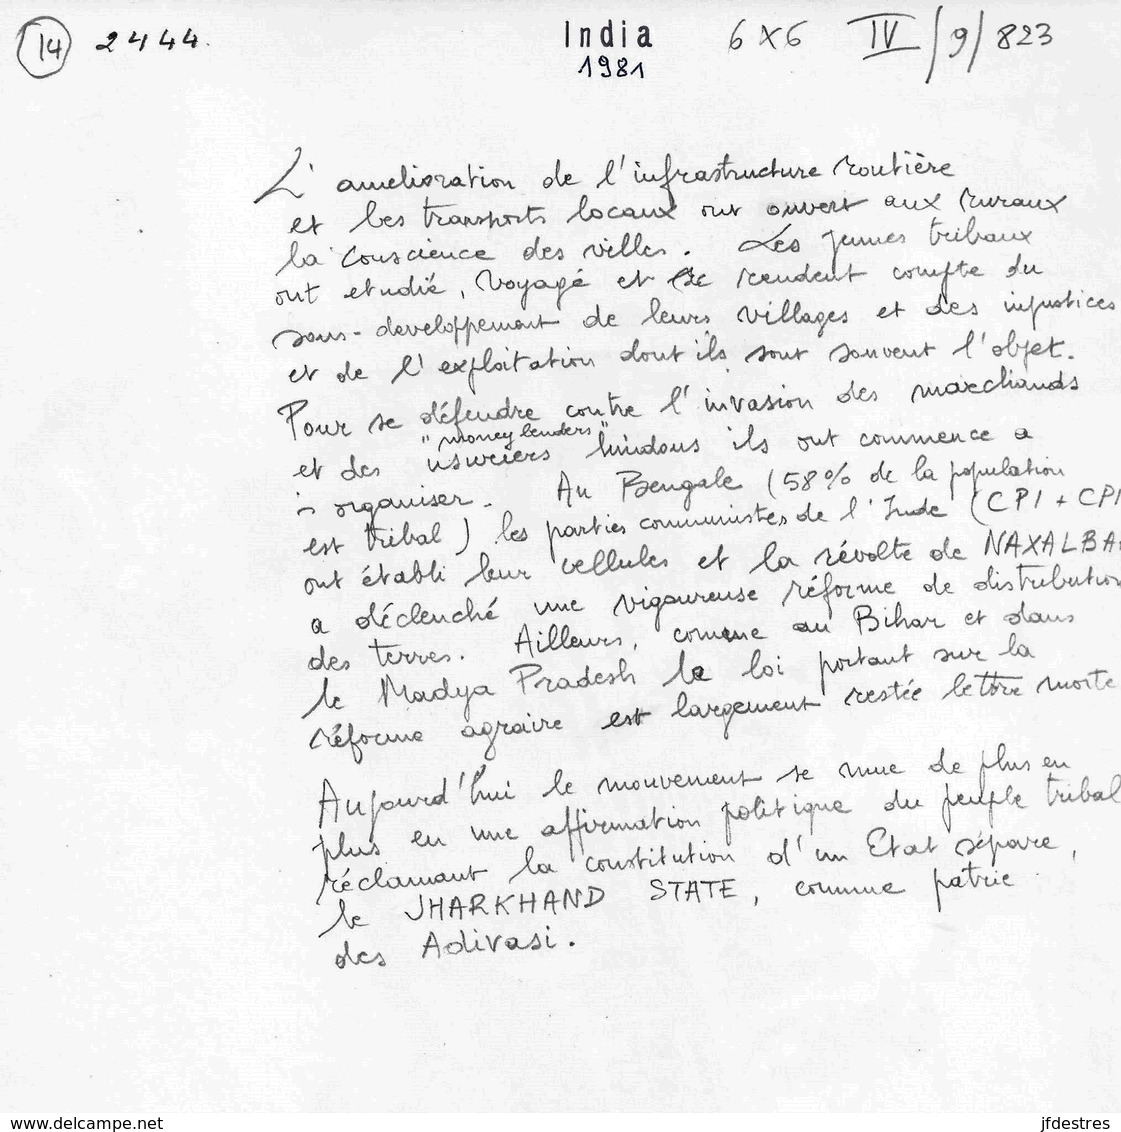 14 2444. India 6x6 IV/9/823
1981
L'amelioration de l'infrastructure routière
et les transports locaux ont ouvert aux ruraux
la conscience des villes. Les jeunes tribaux
ont etudié, voyagé et se rendent compte du
sous-developpement de leurs villages et des injustices
et de l'exploitation dont ils sont souvent l'objet.
Pour se défendre contre l'invasion des marchands
"money lenders"
et des usuriers hindous ils ont commence a
s'organiser. Au Bengale (58% de la population
est tribal) les parties communistes de l'Inde (CPI + CPI
ont établi leur cellules et la révolte de NAXALBA
a déclenché une vigoureuse réforme de distribution
des terres. Ailleurs, comme au Bihar et dans
le Madya Pradesh la loi portant sur la
réforme agraire est largement restée lettre morte
Aujourd'hui le mouvement se mue de plus en
plus en une affirmation politique du peuple tribal
réclamant la constitution d'un Etat séparé,
le JHARKHAND STATE, comme patrie
des Adivasi.
www.delcampe.net jfdestres